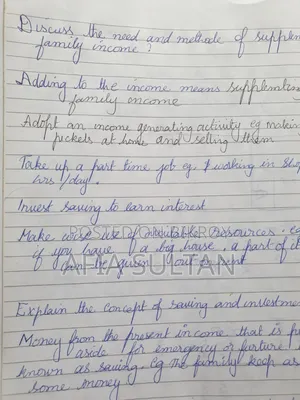 Discuss the need and methode of supplem
family income ?
Adding to the income means supplementing
family income
Adopt an income generating activity eg making
pickels at home and selling them
Take up a part time job eg. working in Shop
hrs /day.
Invest saving to earn interest
Make wise use of available resources. eg
if you have a big house, a part of it
can be given out on rent
POSTED ON
AFIA SULTAN
Explain the concept of saving and investmen
Money from the present income that is pu
aside for emergency or furture is
known as saving. Eg The family keep as
some money